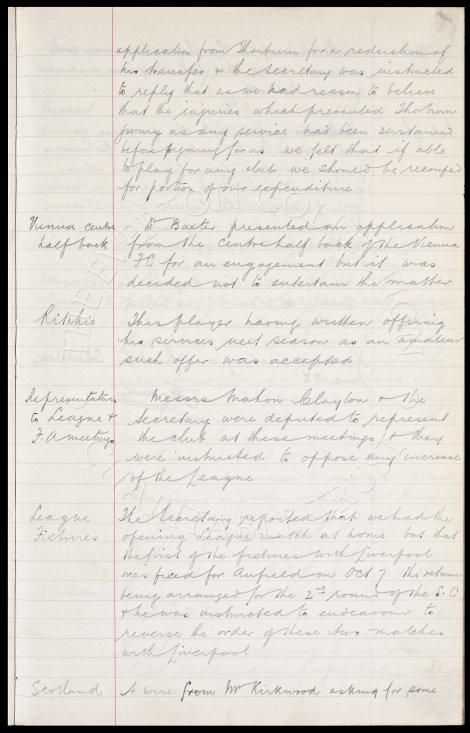 application from Thorburn for a reduction of
his transfer & the Secretary was instructed
to reply that as we had reason to believe
that the injuries which prevented Thorburn
giving us any service had been sustained
before signing for us we felt that if able
to play for any club we should be recouped
for portion of our expenditure
Vienna centre
half back
Dr Baxter presented an application
from the centre half back of the Vienna
FC for an engagement but it was
decided not to entertain the matter
Ritchie
This player having written offering
his services next season as an amateur
such offer was accepted
Representatives
to League &
F.A meetings
Messrs Mahon Clayton & the
Secretary were deputed to represent
the club at these meetings, & they
were instructed to oppose any increase
of the League
League
Fixtures
The Secretary reported that we had the
opening League match at home but that
the first of the fixtures with Liverpool
was fixed for Anfield on Oct 7 the return
being arranged for the 2nd round of the E. C
& he was instructed to endeavour to
reverse the order of these two matches
with Liverpool
Scotland
A wire from Mr Kirkwood asking for some